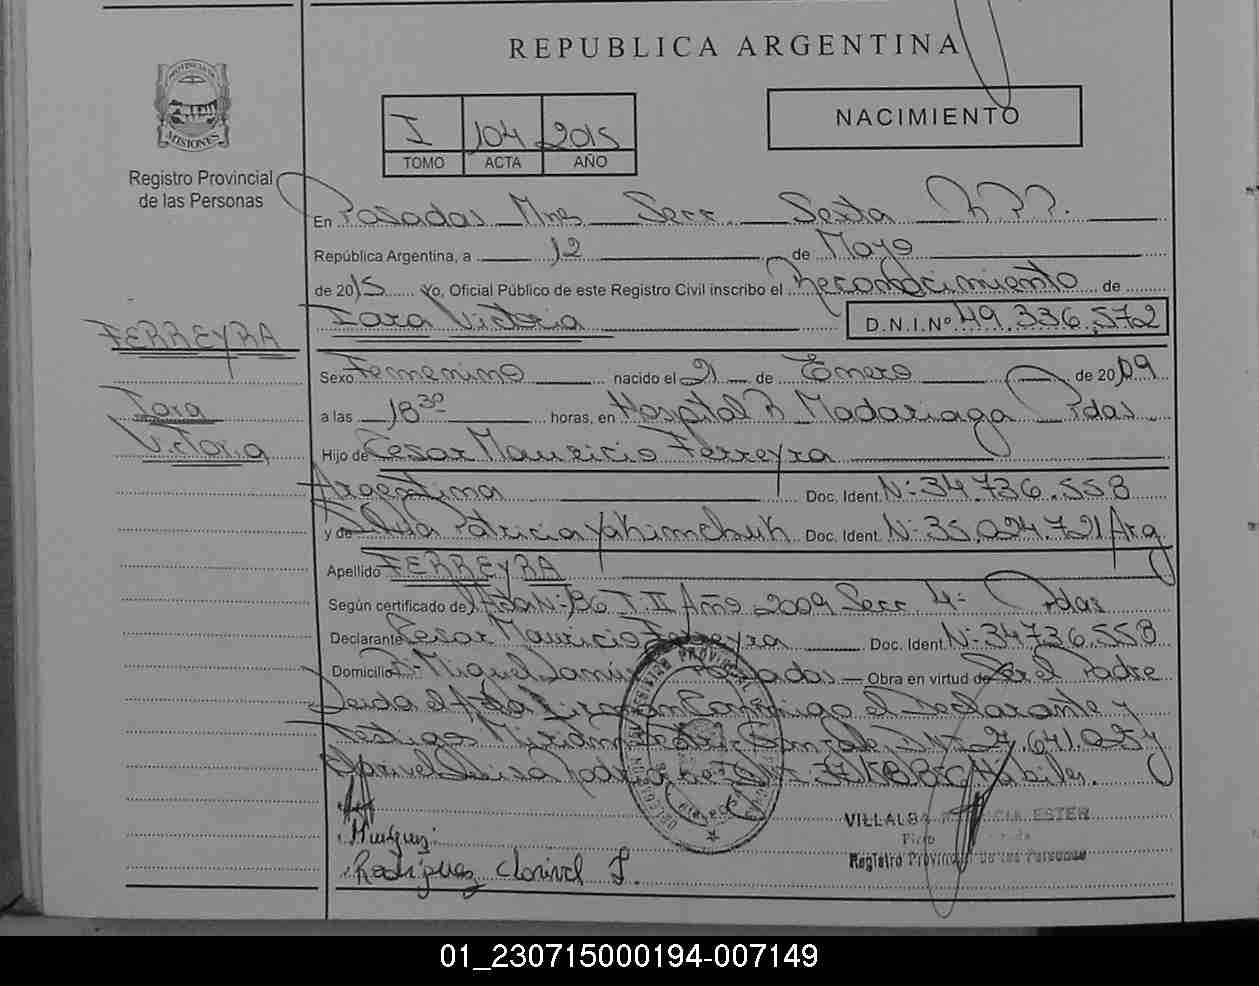 REPUBLICA ARGENTINA
PROVINCIA DE
MISIONES
Registro Provincial
de las Personas
I 104 2015
TOMO ACTA AÑO
NACIMIENTO
En Posadas Mnes Secc. Sexta R.P.P.
República Argentina, a 12 de Mayo
de 2015 Yo, Oficial Público de este Registro Civil inscribo el Reconocimiento de
Iara Victoria D.N.I.Nº 49.336.572
FERREYRA
Iara
Victoria
Sexo Femenino nacido el 21 de Enero de 2009
a las 18 30 horas, en Hospital R. Madariaga Pdas
Hijo de Cesar Mauricio Ferreyra
Argentina Doc. Ident. Nº 34.736.558
y de Patricia Yahimchuk Doc. Ident. Nº 35.024.721 Arg
Apellido FERREYRA
Según certificado de Acta Nº 136 T. II Año 2009 Secc 4º Pdas
Declarante Cesar Mauricio Ferreyra Doc. Ident. Nº 34736.558
Domicilio Bº Miguel Posadas Obra en virtud de Ser el Padre
Leida el Acta Firman Conmigo el Declarante y
Testigos Miriam 27.641.025
Rodriguez Habiles.
VILLALBA ESTER
Registro Provincial de las Personas
Rodriguez Clarivel F.
01_230715000194-007149